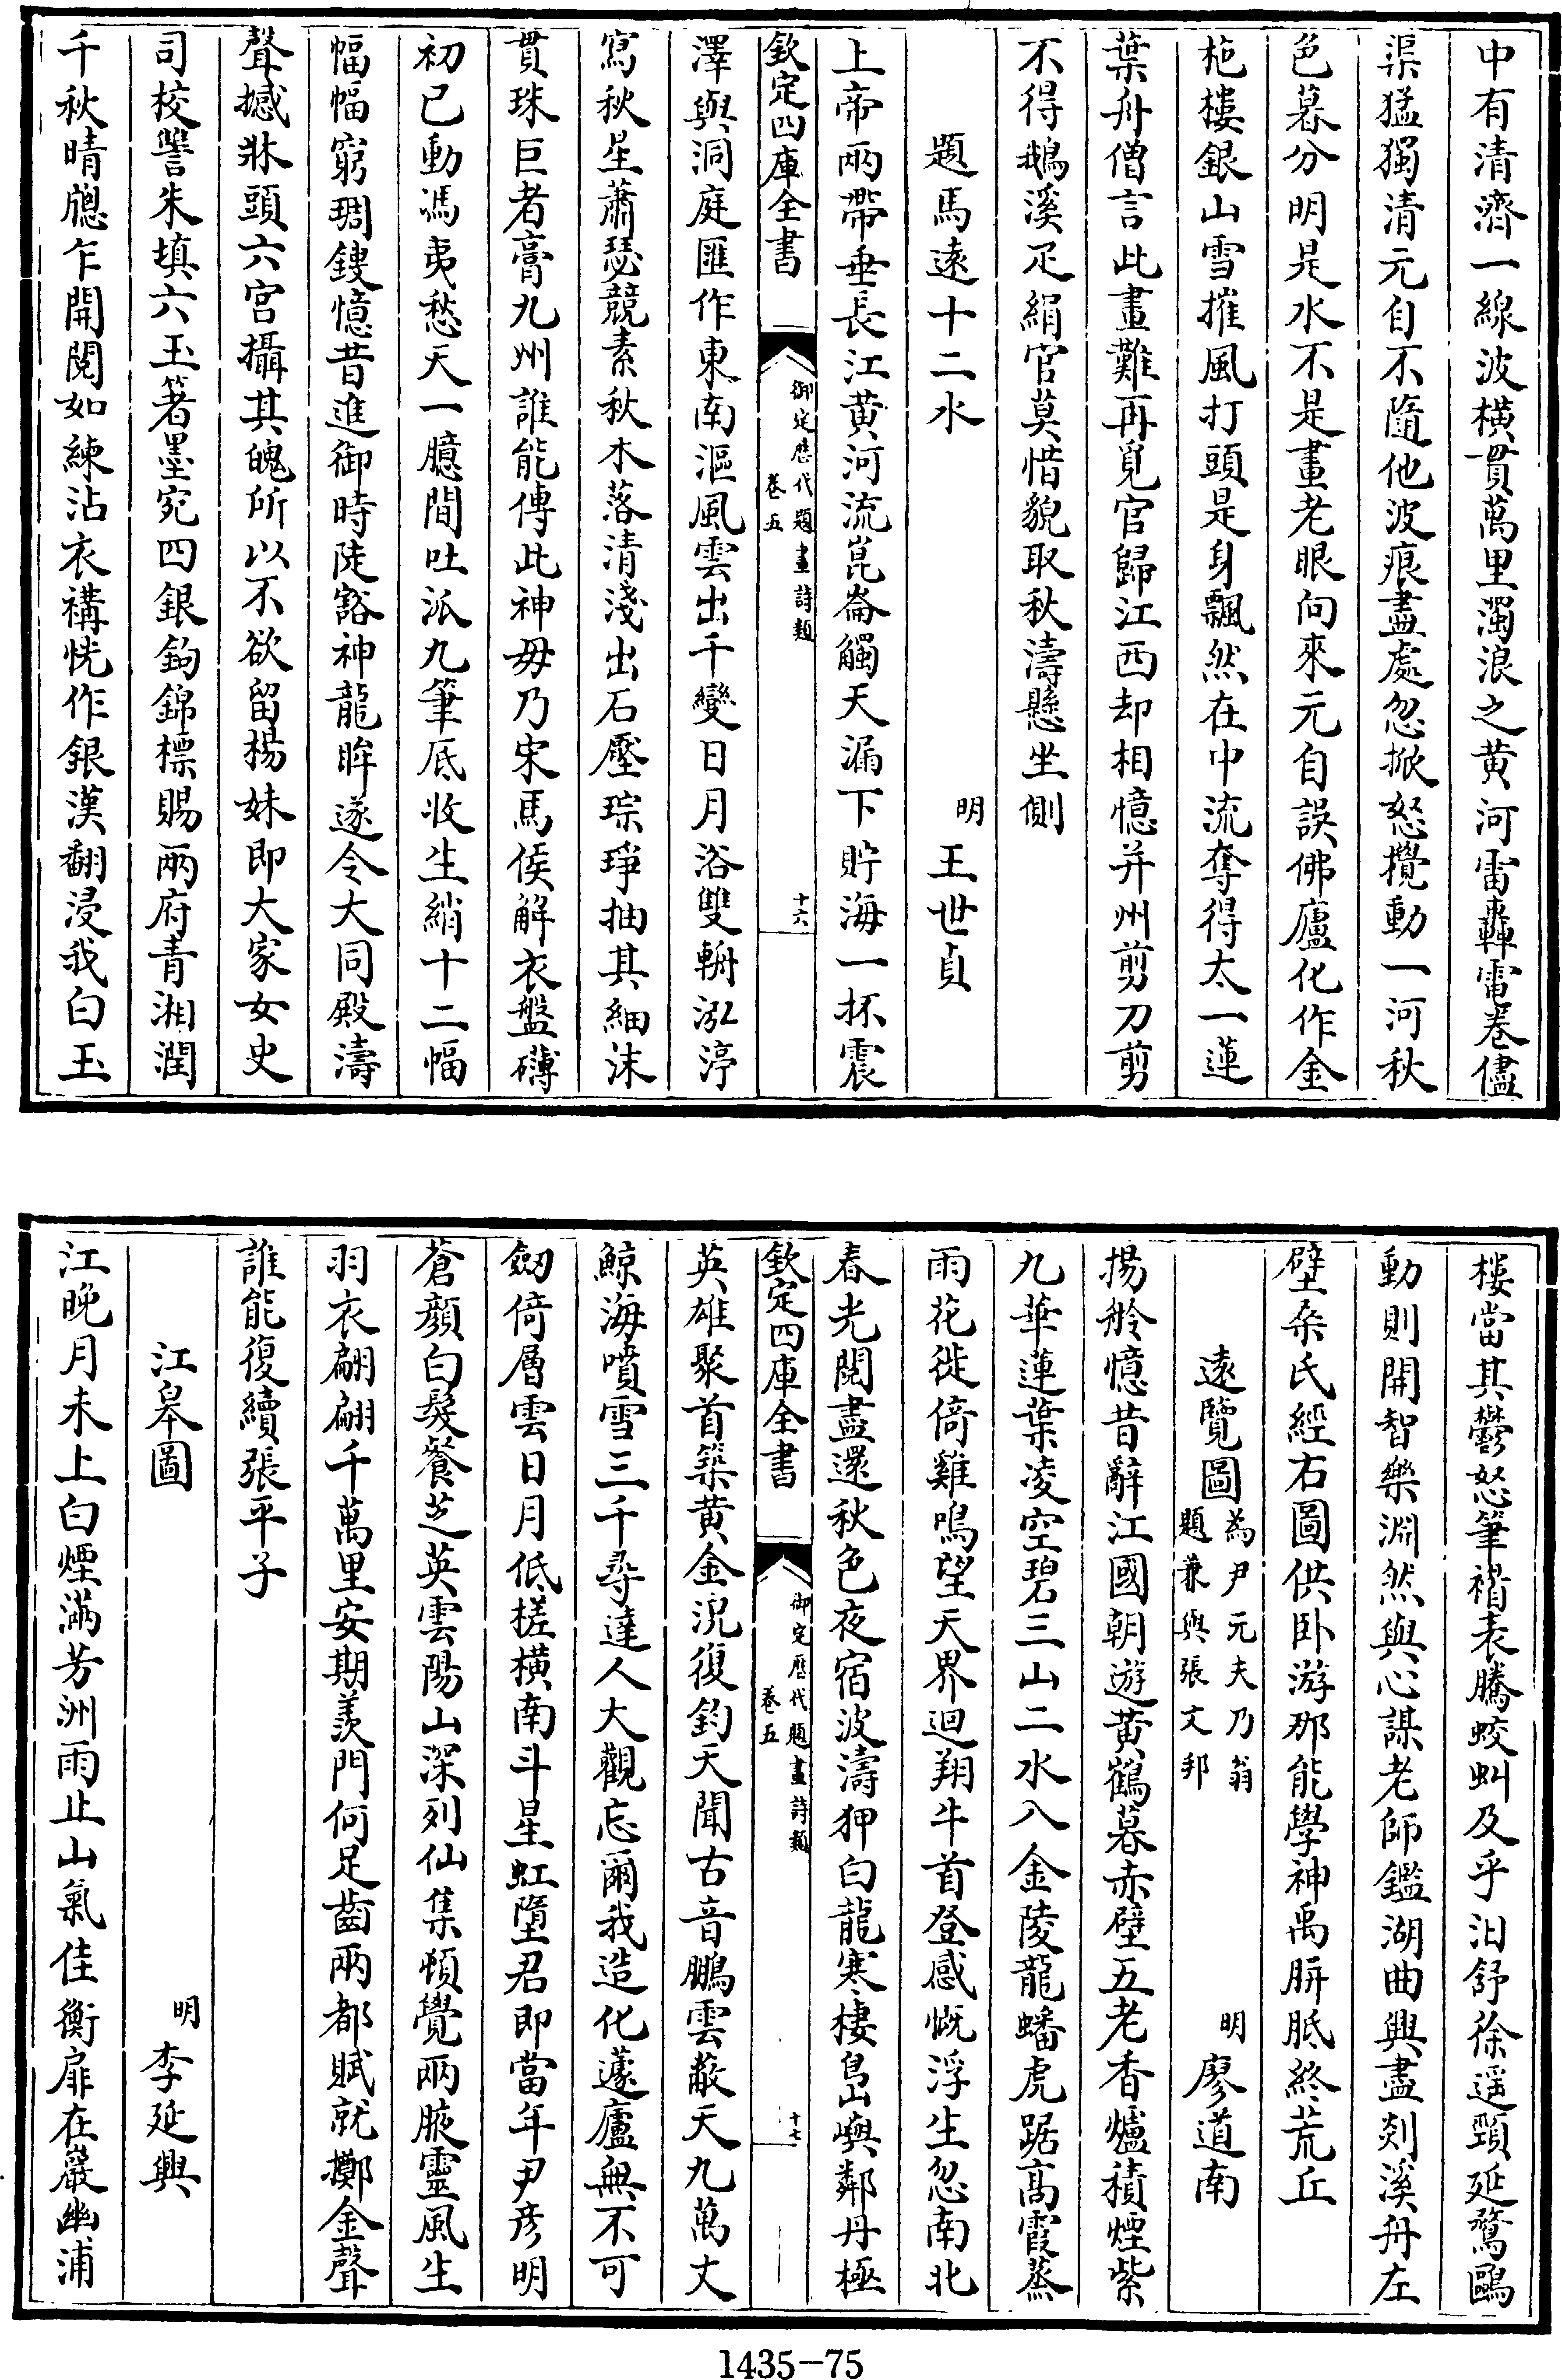 中有清濟一線波橫貫萬里濁浪之黄河雷轟電卷儘
渠猛獨清元自不隨他波痕盡處忽掀怒攪動一河秋
色暮分明是水不是畫老眼向來元自誤佛廬化作金
柂樓銀山雪摧風打頭是身飄然在中流奪得太一蓮
葉舟僧言此畫難再覓官歸江西却相憶并州剪刀剪
不得鵝溪疋絹官莫惜貌取秋濤懸坐側
題馬逺十二水 明 王世貞
上帝兩帶垂長江黄河流崑崙觸天漏下貯海一杯震
欽定四庫全書 御定歴代題畫詩類 卷五 十六
澤與洞庭匯作東南漚風雲出千變日月浴雙輈泓渟
寫秋星蕭瑟競素秋木落清淺出石壓琮琤抽其細沫
貫珠巨者膏九州誰能傳此神毋乃宋馬侯解衣盤礴
初已動馮夷愁天一臆間吐派九筆底收生綃十二幅
幅幅窮琱鎪憶昔進御時陡豁神龍眸遂令大同殿濤
聲撼牀頭六宫攝其魄所以不欲留楊妹即大家女史
司校讐朱填六玉箸墨宛四銀鉤錦標賜兩府青湘潤
千秋晴牕乍開閲如練沾衣褠恍作銀漢翻浸我白玉
樓當其鬱怒筆褶表騰蛟虯及乎汩舒徐遥頸延鶩鷗
動則開智樂淵然與心謀老師鑑湖曲興盡剡溪舟左
壁桑氏經右圖供卧游那能學神禹胼胝終荒丘
逺覽圖 為尹元夫乃翁題兼與張文邦 明 廖道南
揚舲憶昔辭江國朝遊黄鶴暮赤壁五老香爐積煙紫
九華蓮葉凌空碧三山二水八金陵龍蟠虎踞髙霞蒸
雨花徙倚雞鳴望天界迴翔牛首登感慨浮生忽南北
春光閲盡還秋色夜宿波濤狎白龍寒棲島嶼鄰丹極
欽定四庫全書 御定歴代題畫詩類 卷五 十七
英雄聚首築黄金況復鈞天聞古音鵬雲蔽天九萬丈
鯨海噴雪三千尋達人大觀忘爾我造化蘧廬無不可
劒倚層雲日月低槎橫南斗星虹墮君即當年尹彦明
蒼顔白髮餐芝英雲陽山深列仙集頓覺兩腋靈風生
羽衣翩翩千萬里安期羨門何足齒兩都賦就擲金聲
誰能復續張平子
江皋圖 明 李延興
江晩月未上白煙滿芳洲雨止山氣佳衡扉在巖幽浦
1435-75